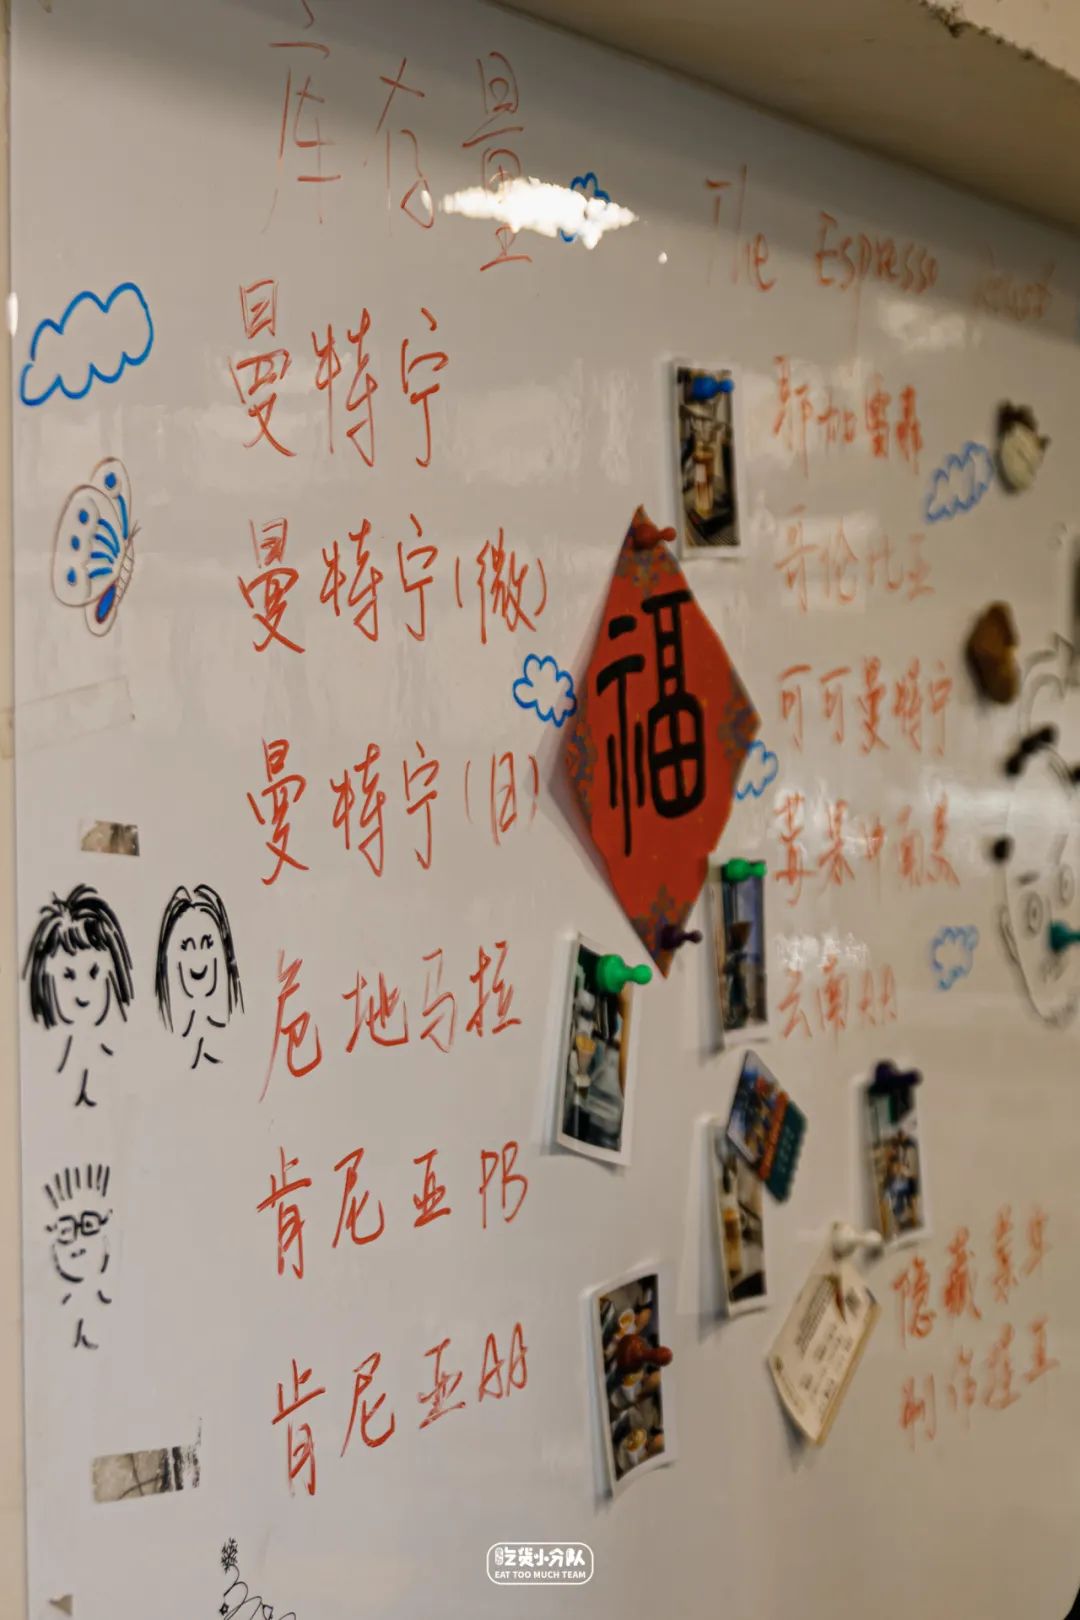 库存量
The Espresso
曼特宁
曼特宁(微)
曼特宁(日)
危地马拉
肯尼亚PB
肯尼亚AA
福
耶加雪菲
哥伦比亚
可可曼特宁
云南AA
隐藏菜单
吃货小分队
EAT TOO MUCH TEAM